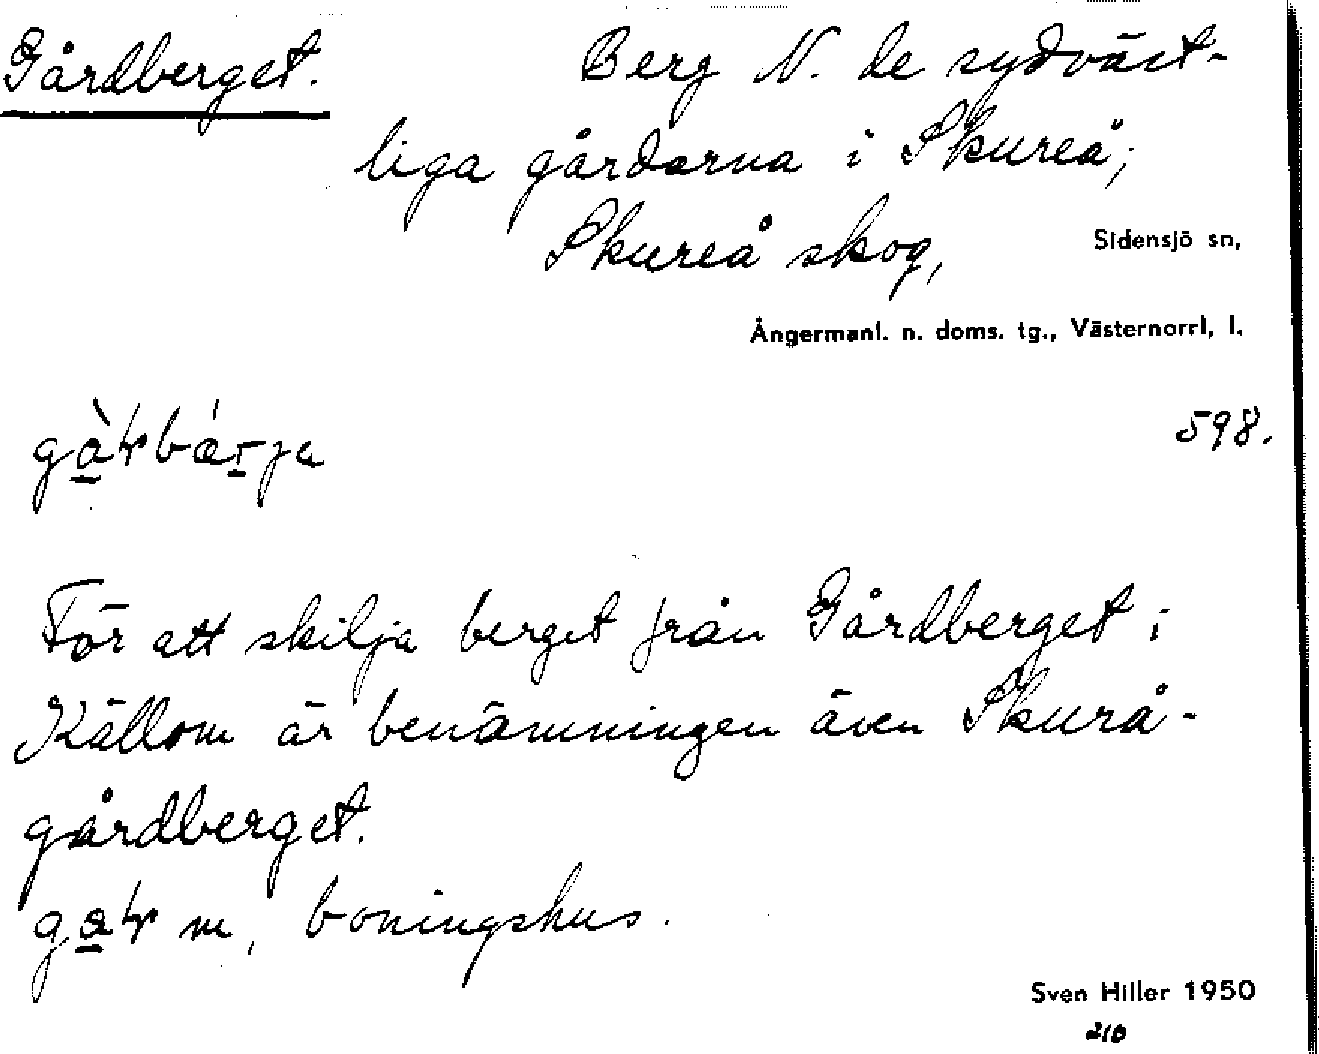 Gårdberget. Berg N. de sydväst-
liga gårdarna i Skureå;
Skureå skog, Sidensjö sn,
Ångermanl. n. doms. tg., Västernorrl. l.
598.
För att skilja berget från Gårdberget i
Källom är benämningen även Skurå-
gårdberget.
m, boningshus.
Sven Hiller 1950
210